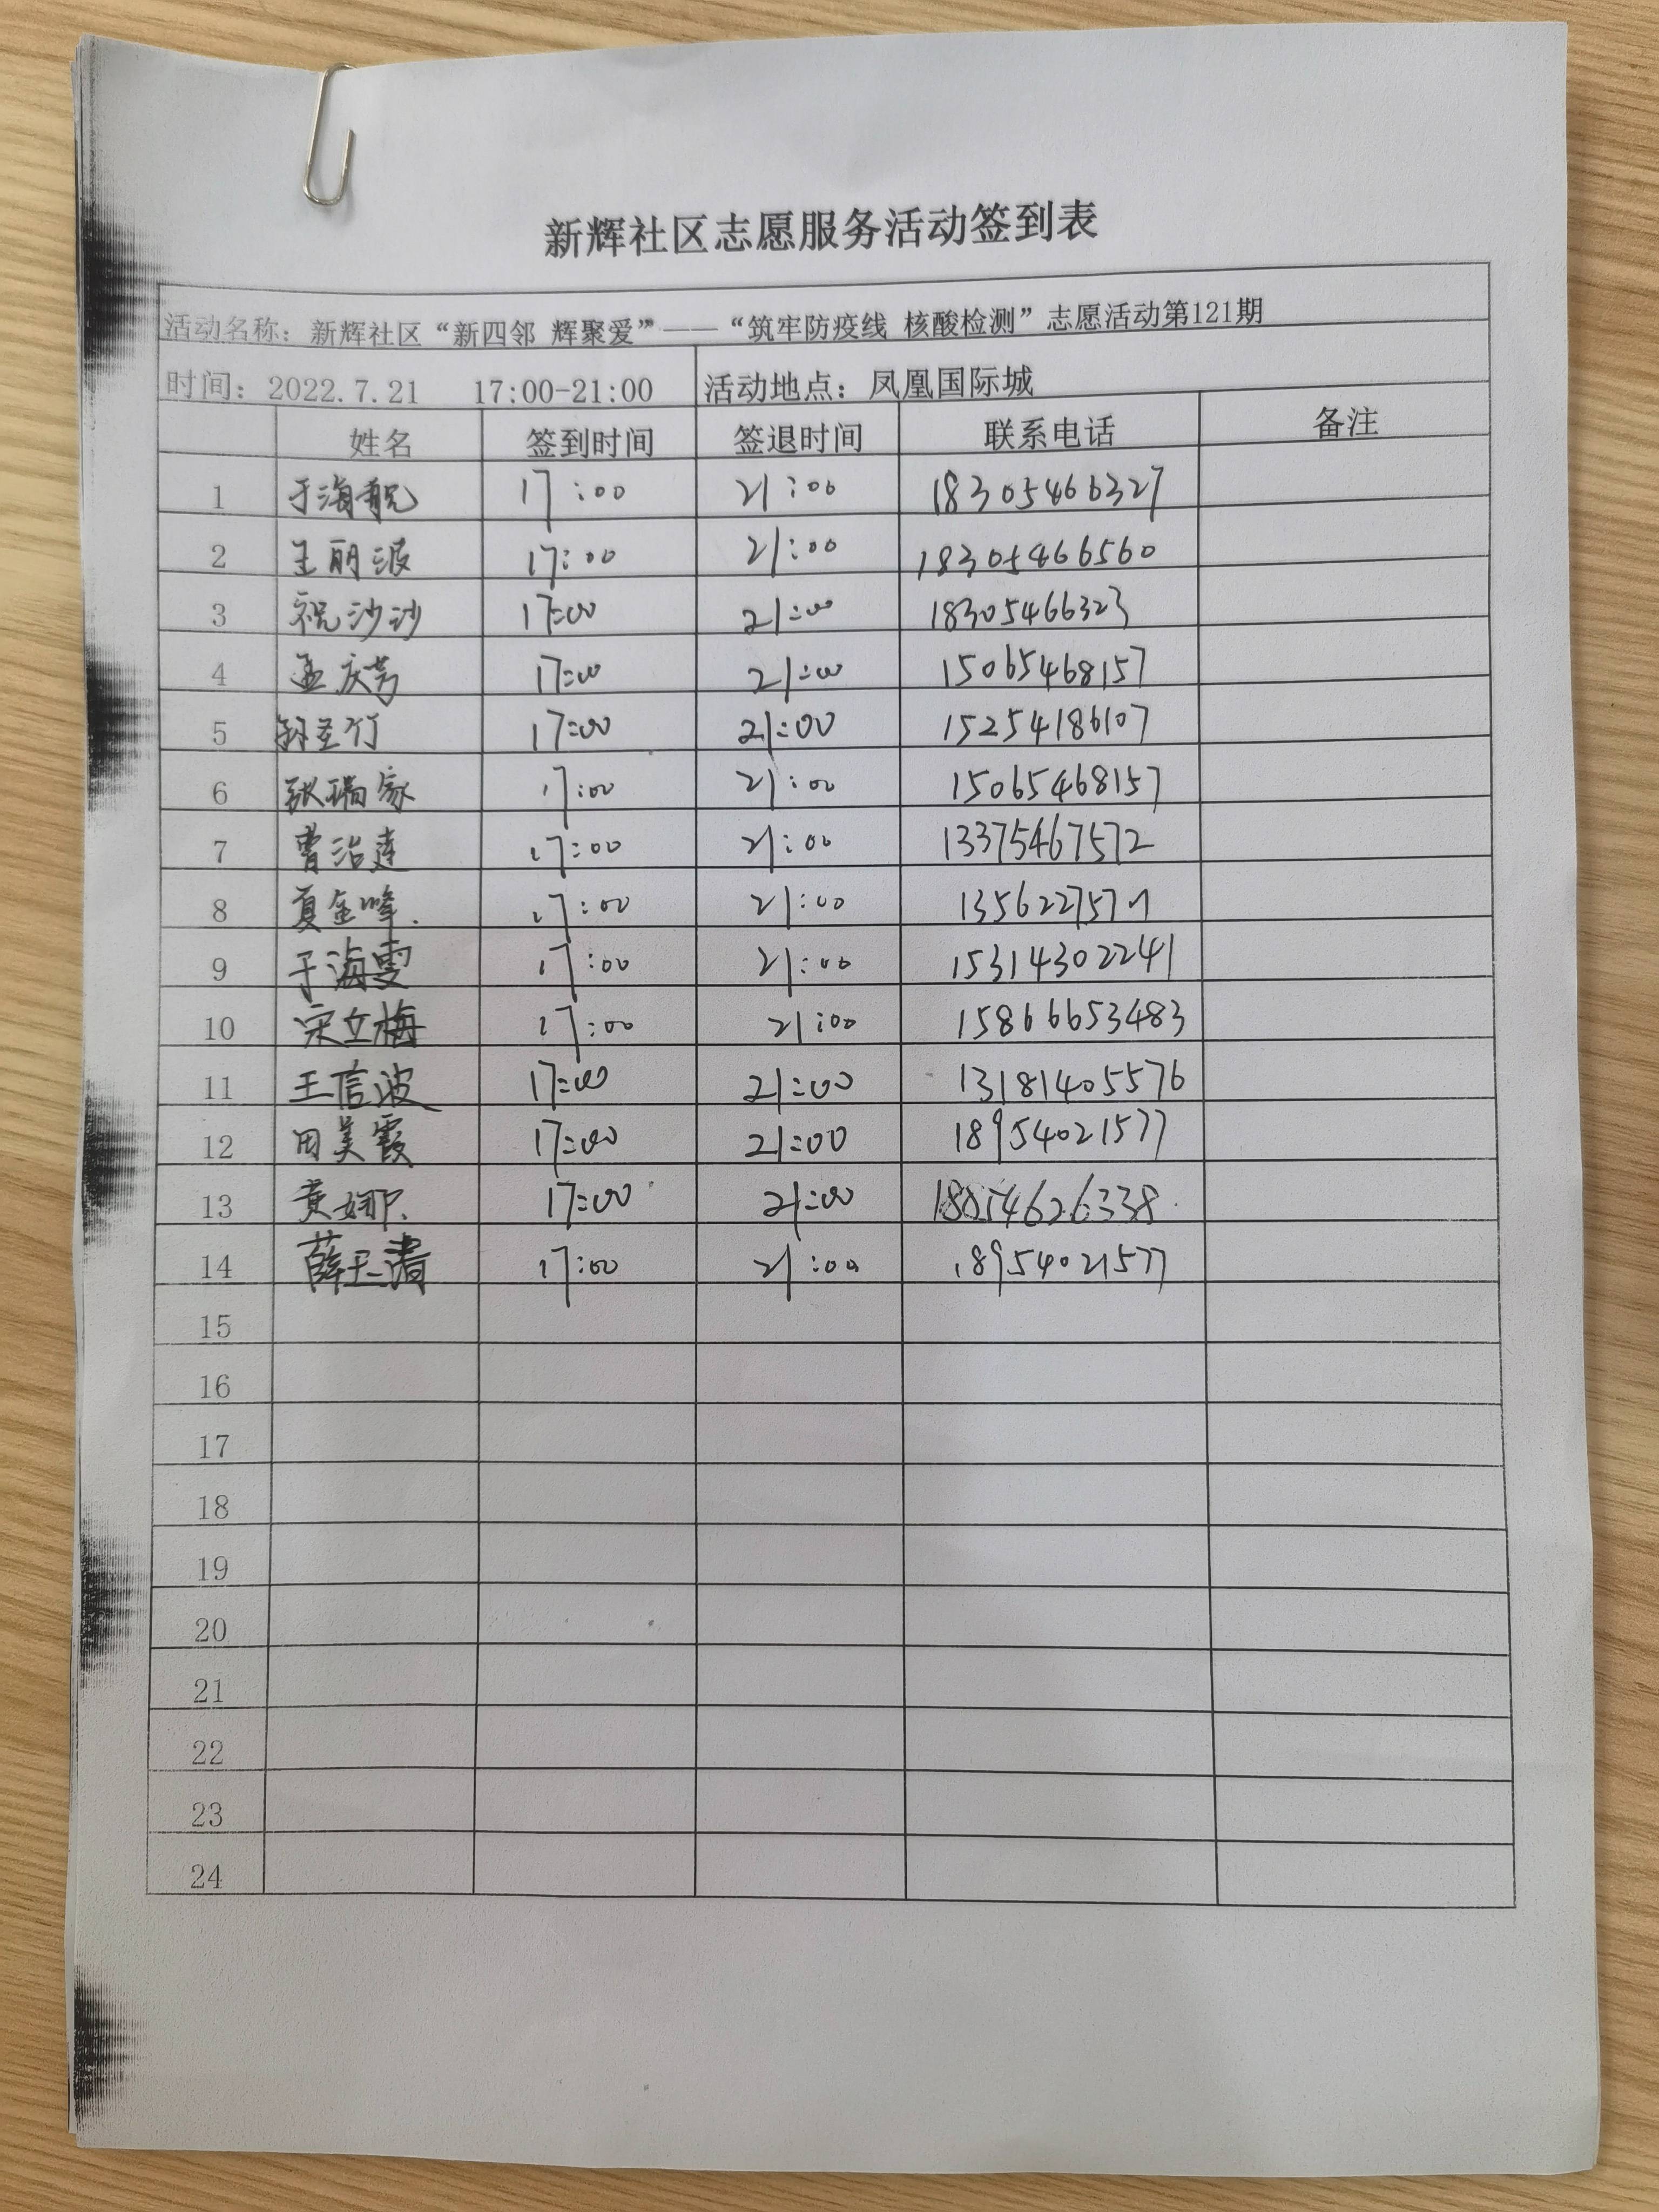 新辉社区志愿服务活动签到表
活动名称：新辉社区“新四邻 辉聚爱”——“筑牢防疫线 核酸检测”志愿活动第121期
时间：2022.7.21 17:00-21:00 活动地点：凤凰国际城
姓名 签到时间 签退时间 联系电话 备注
1 于海靓 17:00 21:00 18305466327
2 王丽波 17:00 21:00 18305466560
3 祝沙沙 17:00 21:00 18305466323
4 孟庆芳 17:00 21:00 15065468157
5 17:00 21:00 15254186107
6 张瑞家 17:00 21:00 15065468157
7 曹治莲 17:00 21:00 13375467572
8 夏金峰. 17:00 21:00
9 于海雯 17:00 21:00 15314302241
10 宋立梅 17:00 21:00 15866653483
11 王信波 17:00 21:00 13181405576
12 田美霞 17:00 21:00 18954021577
13 黄娜. 17:00 21:00 18054626338
14 薛玉清 17:00 21:00 18954021577
15
16
17
18
19
20
21
22
23
24